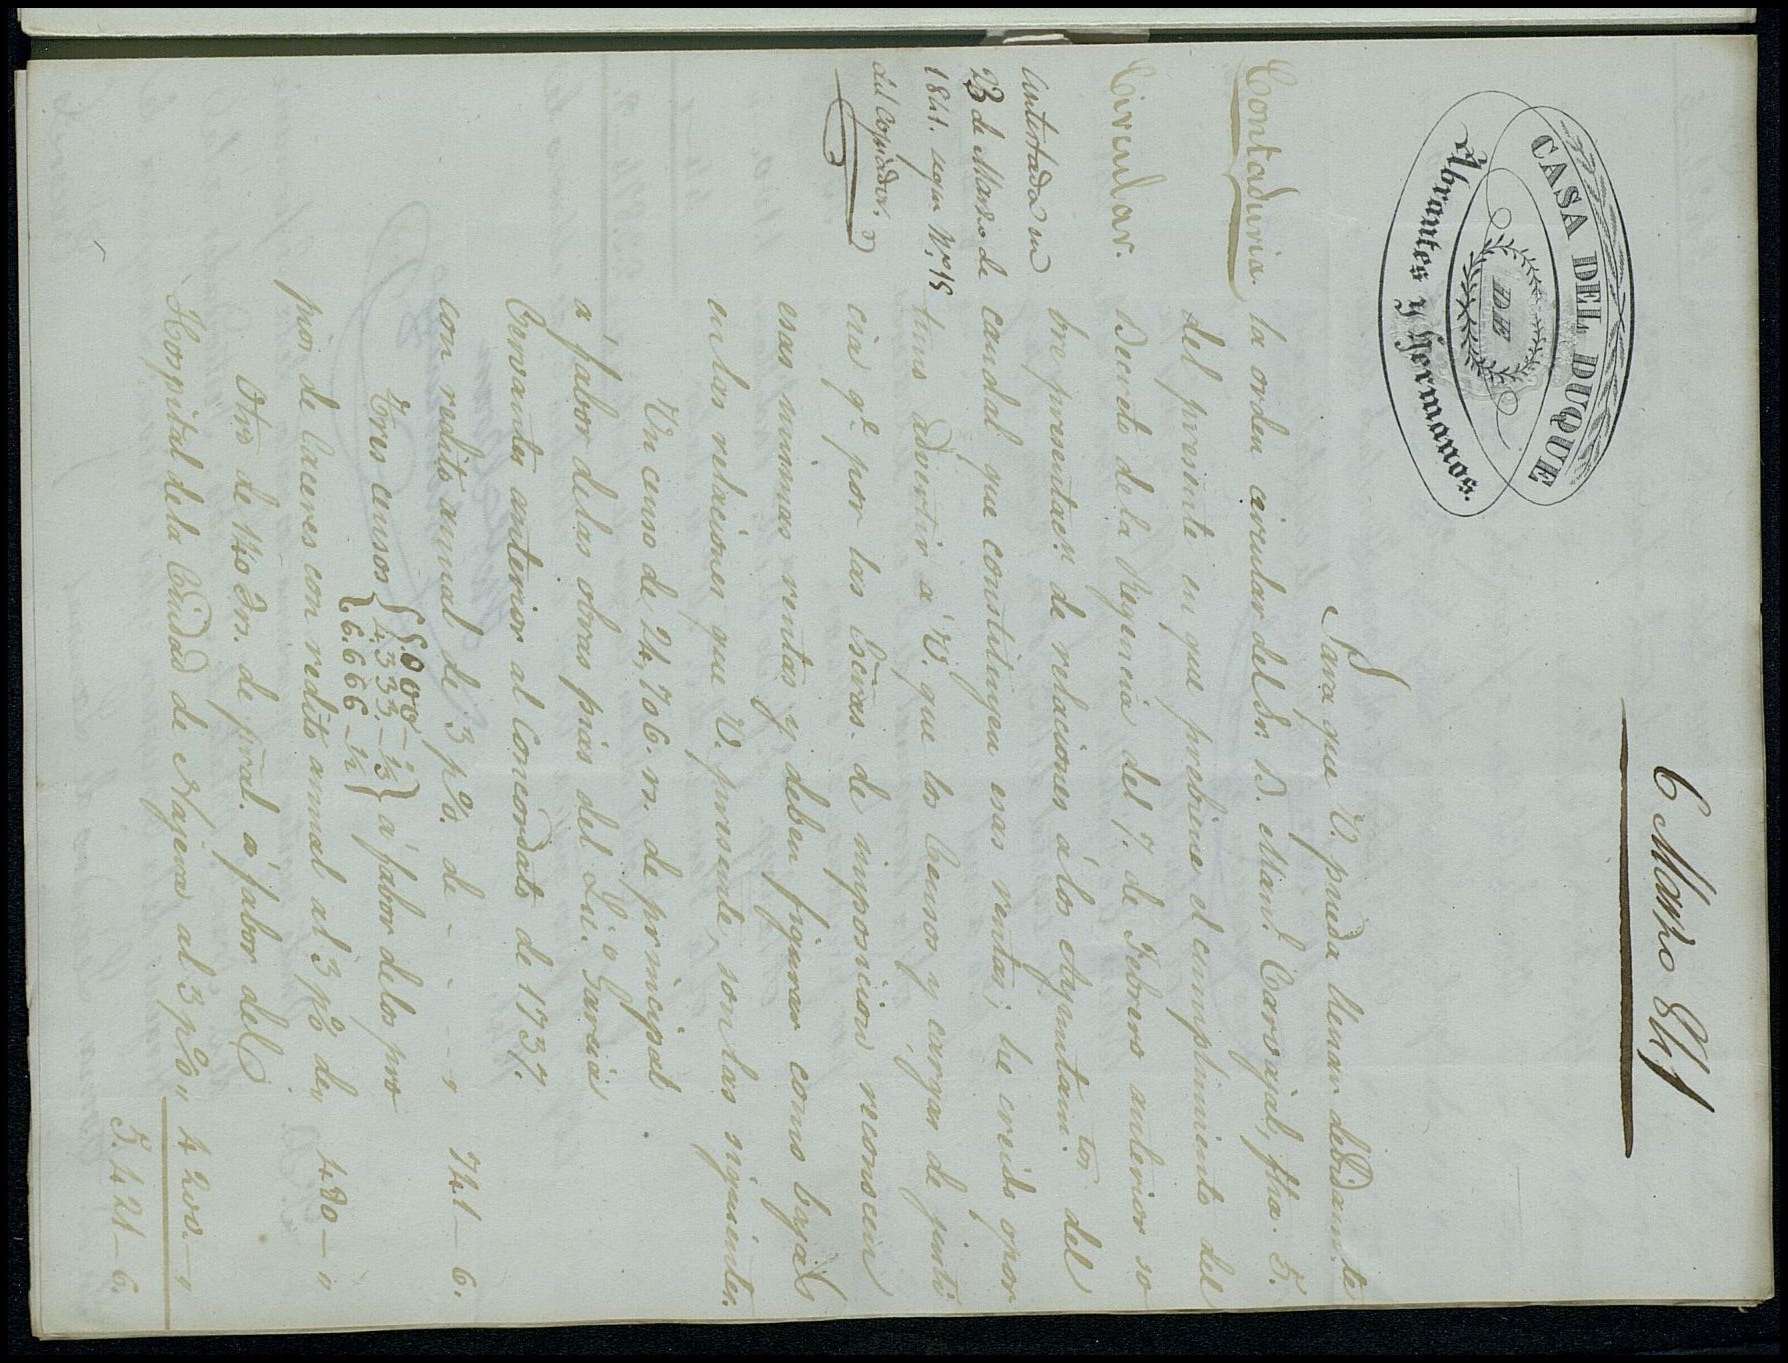 6 Marzo 841
CASA DEL DUQUE
DE
Abrantes y Hermanos.
Contaduria.
Circular.
Contestada en
23 de Marzo de
1841. segun N.º 15
del Copiador.
Para que V. pueda llenar debidam.te
la orden circular del Sr. D. Man.l Carvajal, fha. 5.
del presente en que prebiene el cumplimiento del
Decreto de la Regencia del 7. de Febrero anterior so
bre presentac.n de relaciones á los Ayuntam.tos del
caudal que constituyen esas rentas; he creido opor
tuno advertir á V. que los Censos y cargas de justi
cia q.e por las Escras. de imposicion reconocen
esas mismas rentas y deben figurar como bajas
en las relaciones que V. presente, son las siguientes.
Un censo de 24,706. rs. de principal
á fabor de las obras pias del Lic.o Garcia
Cervantes anterior al Concordato de 1737.
con redito anual de 3 p%. de - - - - 741 - 6.
Tres censos { 5.000 - { 4.333. - 1/3 { 6.666 - 1/2 } á fabor de los pro
pios de Caceres con redito annal al 3 p% de,, 480 - "
Otro de 140 Dn. de pral. á fabor del
Hospital de la Ciudad de Najera al 3 p%,, 4200. - "
5.421 - 6.